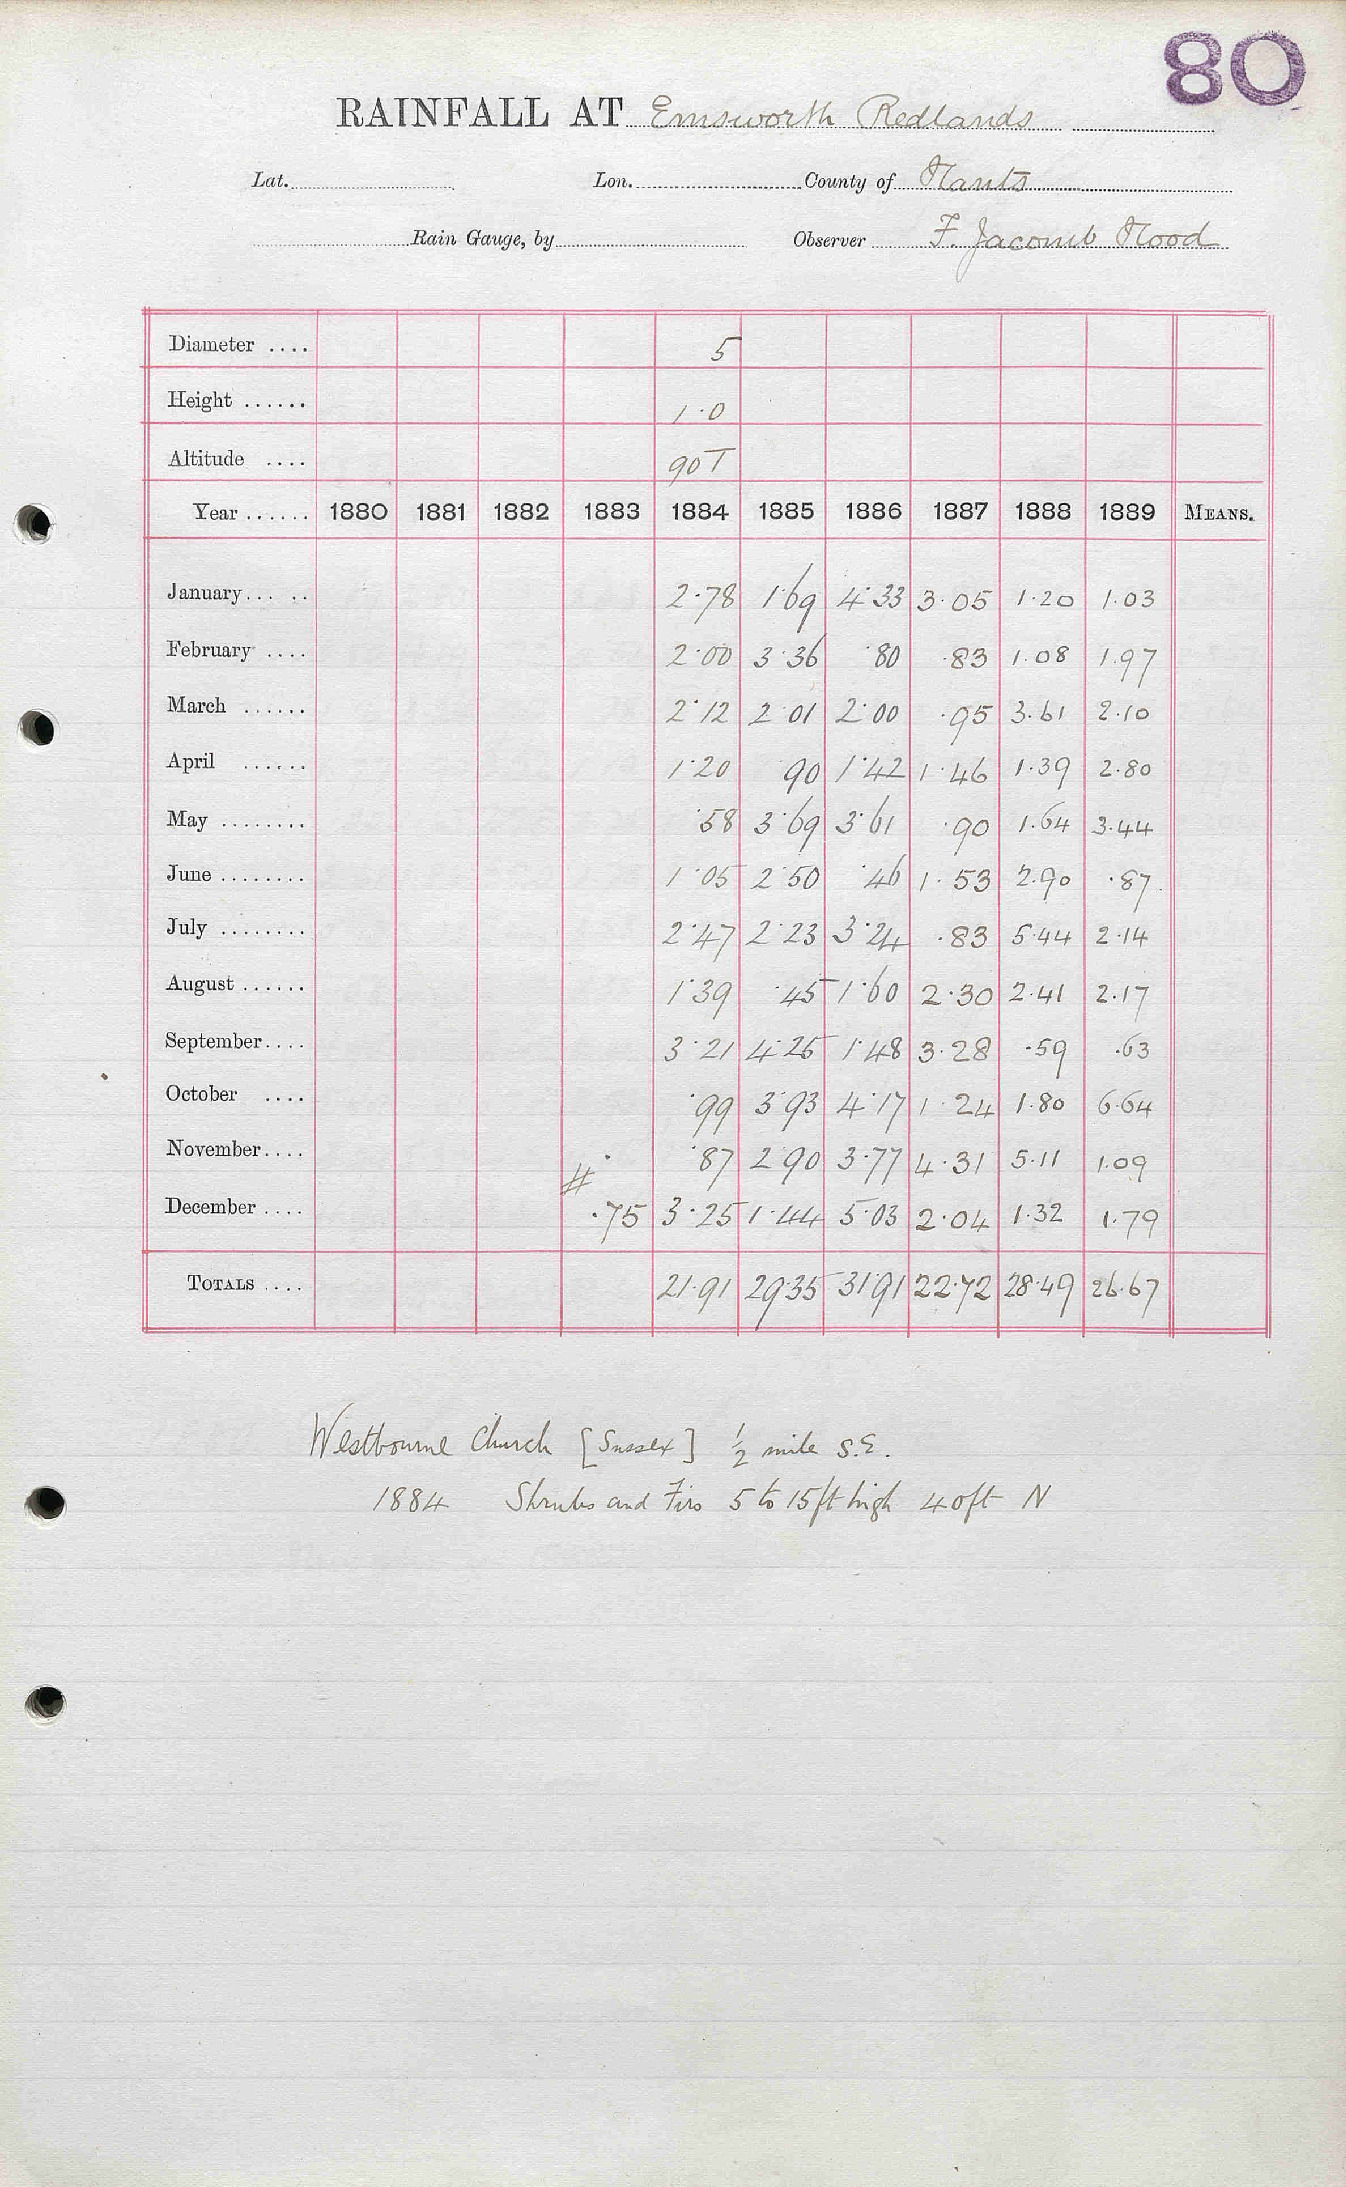 80
RAINFALL AT Emsworth Redlands
Lat. Lon. County of Hants
Rain Gauge, by Observer F. Jacomb Hood
Diameter .... 5
Height ...... 1·0
Altitude .... 90T
Year ...... 1880 1881 1882 1883 1884 1885 1886 1887 1888 1889 MEANS.
January... .. 2·78 1·69 4·33 3·05 1·20 1·03
February .... 2·00 3·36 ·80 ·83 1·08 1·97
March ...... 2·12 2·01 2·00 ·95 3·61 2·10
April ...... 1·20 90 1·42 1·46 1·39 2·80
May ........ ·58 3·69 3·61 ·90 1·64 3·44
June ........ 1·05 2·50 ·46 1·53 2·90 ·87
July ........ 2·47 2·23 3·24 ·83 5·44 2·14
August ...... 1·39 ·45 1·60 2·30 2·41 2·17
September.... 3·21 4·25 1·48 3·28 ·59 ·63
October .... ·99 3·93 4·17 1·24 1·80 6·64
November.... ·87 2·90 3·77 4·31 5·11 1·09
#
December .... ·75 3·25 1·44 5·03 2·04 1·32 1·79
TOTALS .... 21·91 29·35 31·91 22·72 28·49 26·67
Westbourne Church [Sussex] ½ mile S.E.
1884 Shrubs and Firs 5 to 15ft high 40ft N